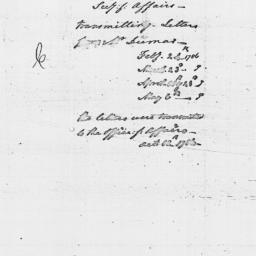 Secy f. Affairs—
transmitting letters
from Mr Dumas—
Feby. 24th 1786
March 23d — ?
April 23d ?
May 6th — ?
The letters were transmitted
to the office of f. Affairs—
Octr 12th 1786—